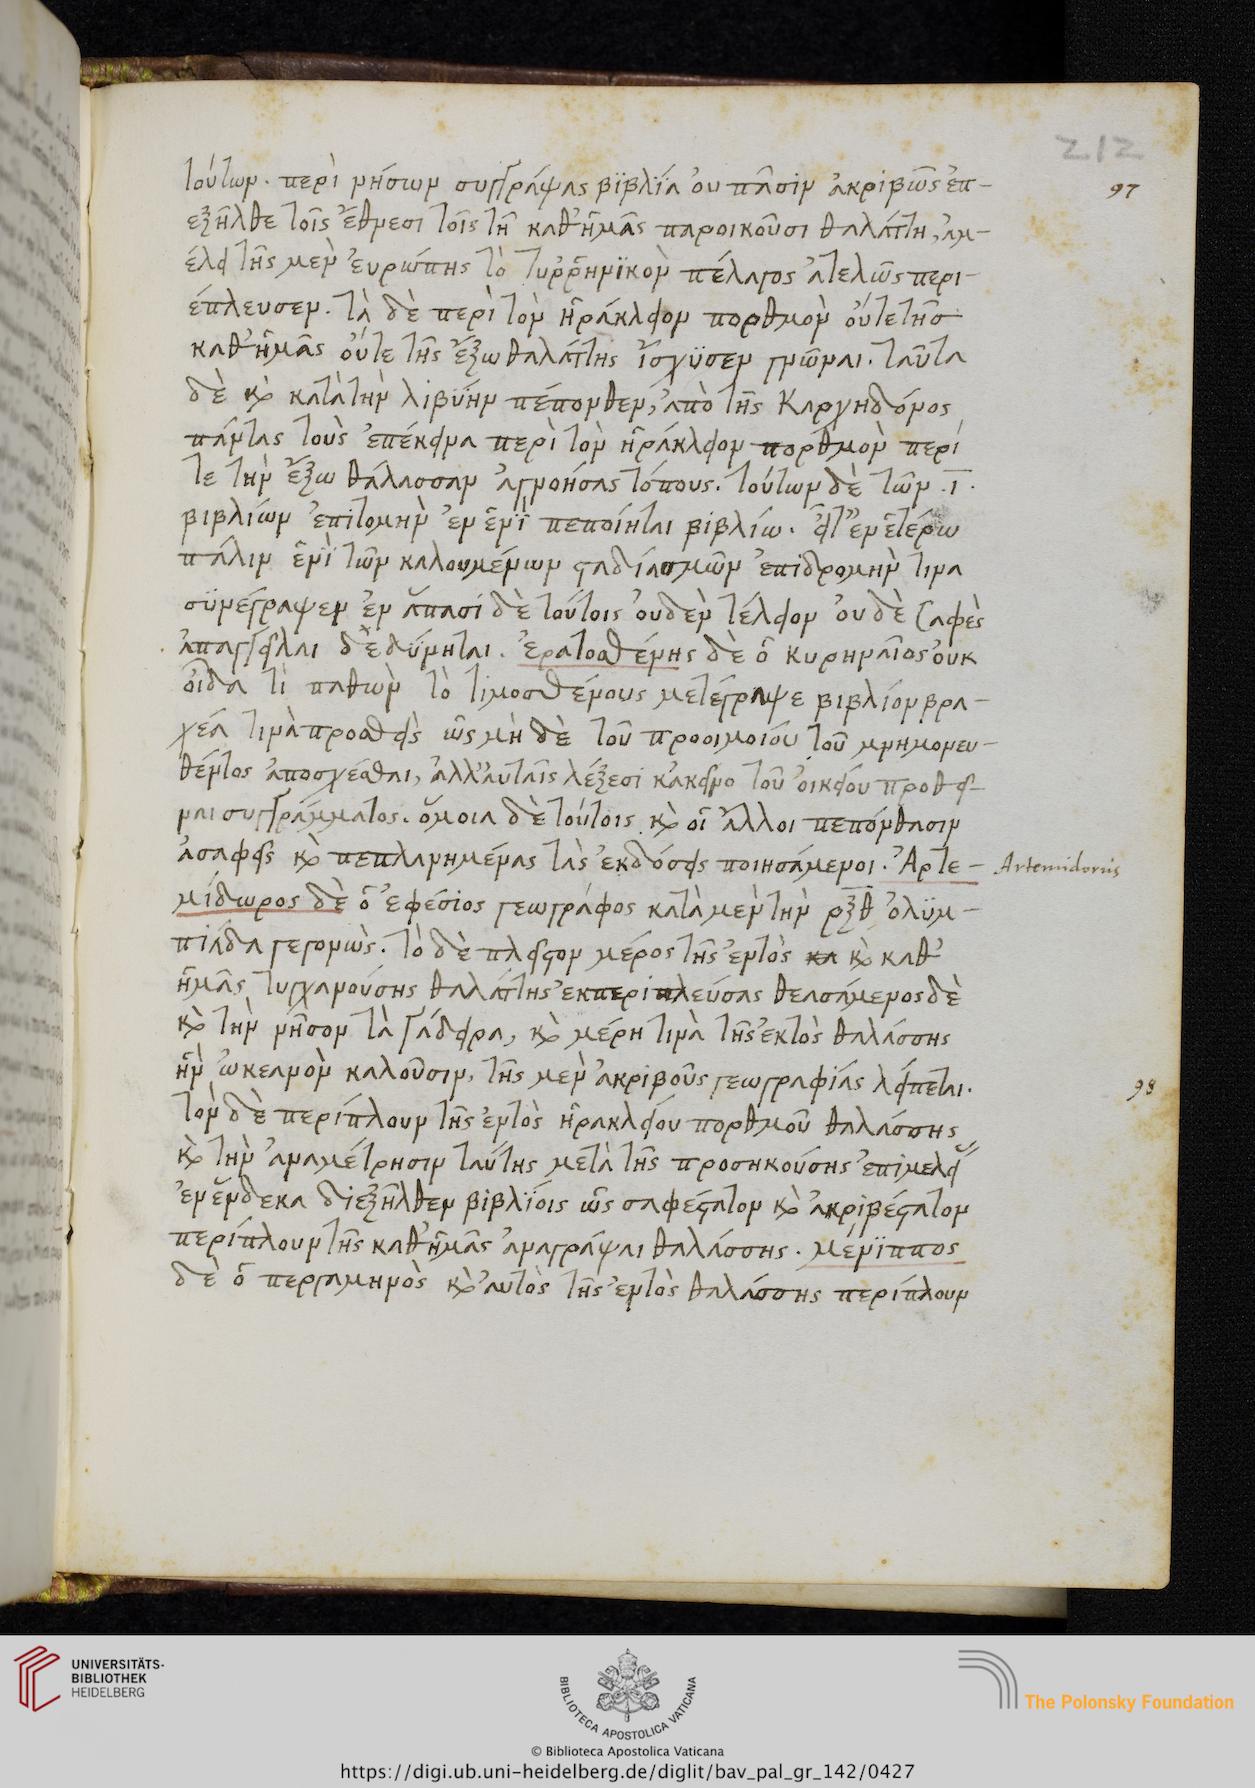 212
τούτων. περὶ νήσων συγγράψας βϊβλϊα ὀυ πᾶσιν ἀκριβῶς ἐπ-
97
εξῆλθε τοῖς ἔθνεσι τοῖς τῆ καθ' ἡμᾶς παροικοῦσι θαλάττη, ἀμ-
έλει τῆς μὲν ἐυρώπης τὸ τυῤῥηνϊκὸν πέλαγος ἀτελῶς περι-
έπλευσεν. τὰ δὲ περὶ τὸν ἡράκλειον πορθμὸν οὔτε τῆσ
καθ' ἡμᾶς οὔτε τῆς ἔξω θαλάττης ἴσχϋσεν γνῶναι. ταῦτα
δὲ κὰι κατὰ τὴν λιβύην πέπονθεν, ἀπὸ τῆς Καρχηδόνος
πάντας τοὺς ἐπέκεινα περὶ τὸν ἡράκλειον πορθμὸν περί
τε τὴν ἔξω θάλασσαν ἀγνοήσας τόπους. τούτων δὲ τῶν .ι̅.
βιβλίων ἐπιτομὴν ἐν ἑνὶ πεποίηται βιβλίω. εἶτ' ἐν ἑτέρω
πάλιν ἑνὶ τῶν καλουμένων σταδιασμῶν ἐπιδρομὴν τινα
σϋνέγραψεν ἐν ἅπασί δὲ τούτοις ὀυδὲν τέλειον ὀυδὲ σαφὲς
ἀπαγγεῖλαι δεδύνηται. ἐρατοσθένης δὲ ὁ κυρηναῖος ὀυκ
οἶδα τί παθὼν τὸ τιμοσθένους μετέγραψε βιβλίον βρα-
χέα τινὰ προσθεὶς ὡς μὴ δὲ τοῦ προοιμοίου τοῦ μνημονευ-
θέντος ἀποσχέσθαι, ἀλλ' ἀυταῖς λέξεσι κἀκεῖνο τοῦ ὀικείου προθεῖ-
ναι συγγράμματος. ὅμοια δὲ τούτοις κὰι οἱ ἄλλοι πεπόνθασιν
ἀσαφεῖς κὰι πεπλανημένας τὰς ἐκδόσεις ποιησάμενοι. Ἀρτε-
Artemidorus
μίδωρος δὲ ὁ ἐφέσιος γεωγράφος κατὰ μὲν τὴν ρξθ ὀλϋμ-
πιάδα γεγονὼς. τὸ δὲ πλεῖστον μέρος τῆς ἐντὸς κα κὰι καθ'
ἡμᾶς τυγχανούσης θαλάττης ἐκπεριπλεύσας θεασάμενος δὲ
κὰι τὴν νῆσον τὰ Γάδειρα, κὰι μέρη τινὰ τῆς ἐκτὸς θαλάσσης
ἣν ὠκεανὸν καλοῦσιν, τῆς μὲν ἀκριβοῦς γεωγραφίας λείπεται.
98
τὸν δὲ περίπλουν τῆς ἐντὸς ἡρακλείου πορθμοῦ θαλάσσης
κὰι τὴν ἀναμέτρησιν ταύτης μετὰ τῆς προσηκούσης ἐπιμελεί
ἐν ἕνδεκα διεξῆλθεν βιβλΐοις ὡς σαφέστατον κὰι ἀκριβέστατον
περίπλουν τῆς καθ' ἡμᾶς ἀναγράψαι θαλάσσης. μένϊππος
δὲ ὁ περγαμηνὸς κὰι ἀυτὸς τῆς ἐντὸς θαλάσσης περίπλουν
UNIVERSITÄTS-
BIBLIOTHEK
HEIDELBERG
BIBLIOTECA APOSTOLICA VATICANA
The Polonsky Foundation
© Biblioteca Apostolica Vaticana
https://digi.ub.uni-heidelberg.de/diglit/bav_pal_gr_142/0427